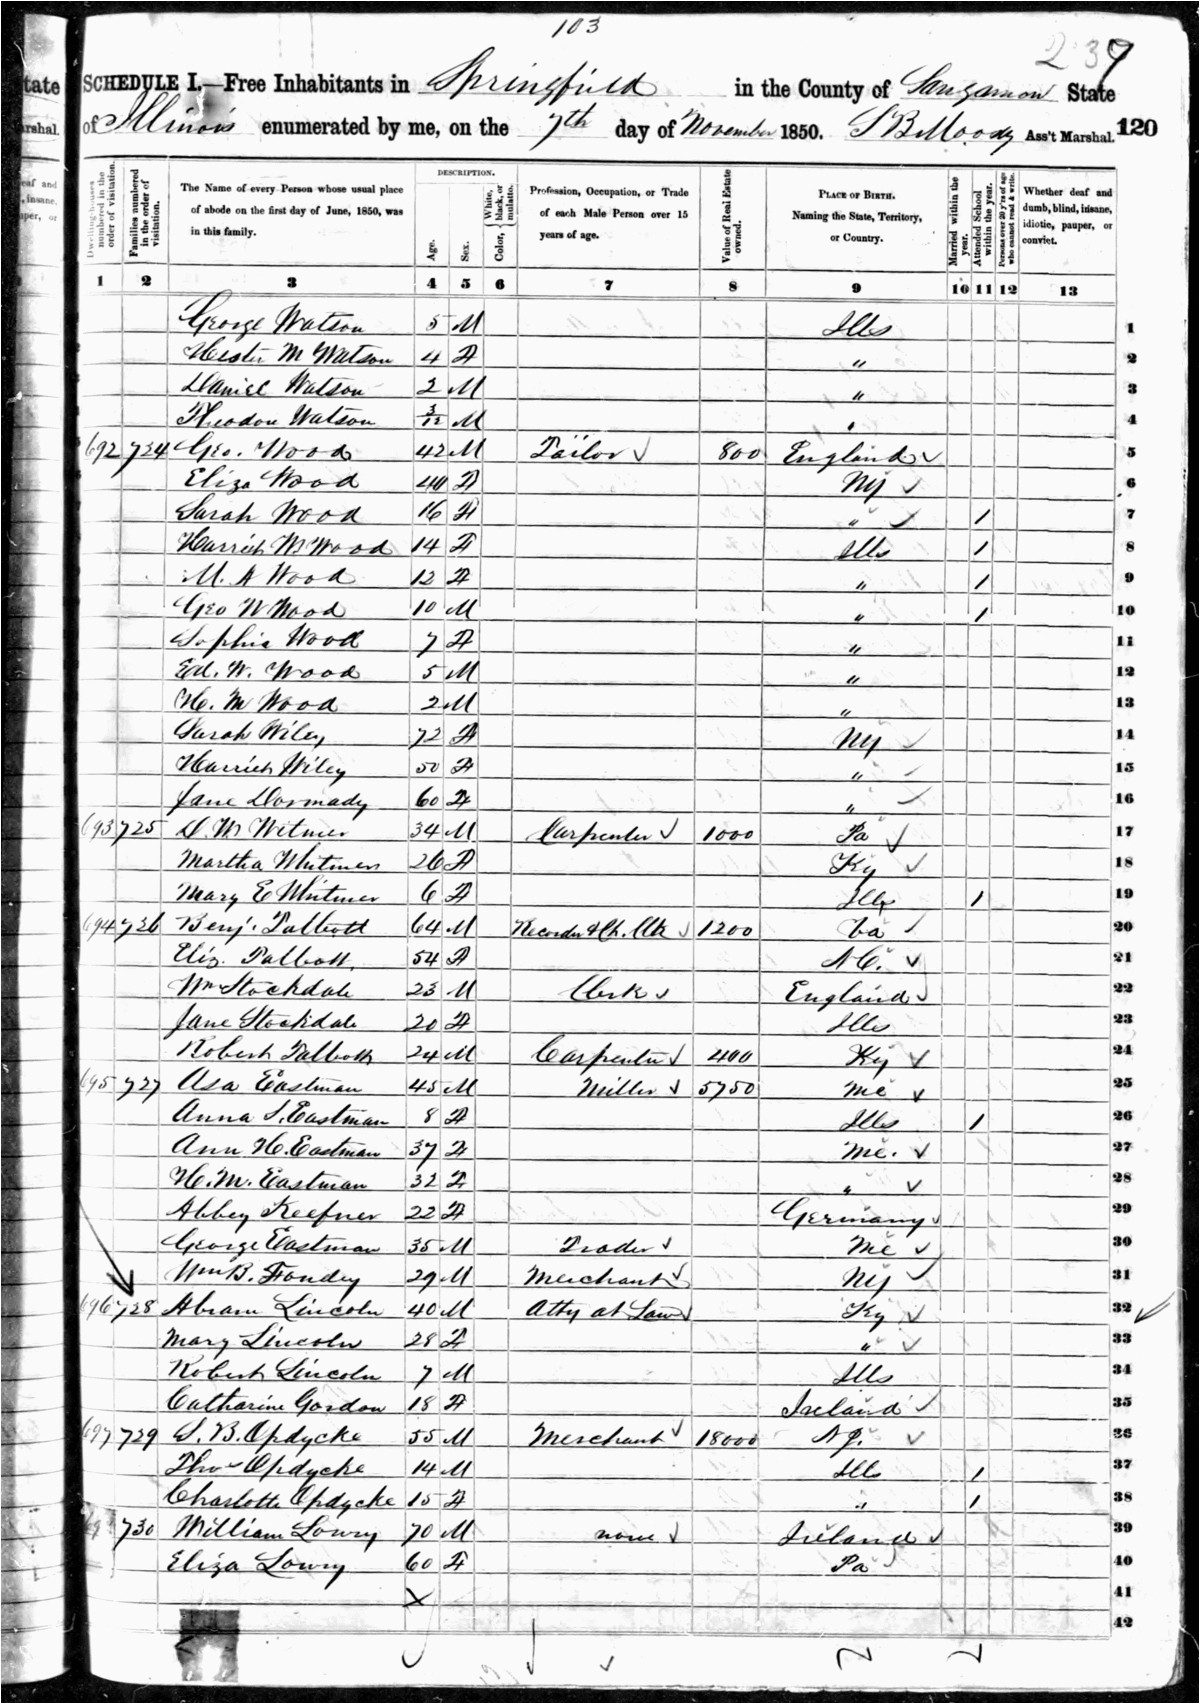 103
239
SCHEDULE I.—Free Inhabitants in Springfield in the County of Sangamon State
of Illinois enumerated by me, on the 7th day of November 1850. S B Moody Ass't Marshal. 120
Dwelling-houses numbered in the order of visitation.
Families numbered in the order of visitation.
The Name of every Person whose usual place of abode on the first day of June, 1850, was in this family.
DESCRIPTION.
Age.
Sex.
Color, White, black, or mulatto.
Profession, Occupation, or Trade of each Male Person over 15 years of age.
Value of Real Estate owned.
PLACE OF BIRTH.
Naming the State, Territory, or Country.
Married within the year.
Attended School within the year.
Persons over 20 y'rs of age who cannot read & write.
Whether deaf and dumb, blind, insane, idiotic, pauper, or convict.
1 2 3 4 5 6 7 8 9 10 11 12 13
George Watson 5 M Ills 1
Hester M Watson 4 F " 2
Daniel Watson 2 M " 3
Theodore Watson 3/12 M " 4
692 724 Geo. Wood 42 M Tailor 800 England 5
Eliza Wood 40 F NY 6
Sarah Wood 16 F " 1 7
Harriet M Wood 14 F Ills 1 8
M. A Wood 12 F " 1 9
Geo W Wood 10 M " 1 10
Sophia Wood 7 F " 11
Ed. W. Wood 5 M " 12
H. M Wood 2 M " 13
Sarah Wiley 72 F NY 14
Harriet Wiley 50 F " 15
Jane Dormady 60 F " 16
693 725 D. W Witmer 34 M Carpenter 1000 Pa 17
Martha Whitmer 26 F Ky 18
Mary E Whitmer 6 F Ills 1 19
694 726 Benj. Talbott 64 M Recorder & Ch. Clk 1200 Va 20
Eliz. Talbott 54 F N C. 21
Wm Stockdale 23 M Clerk England 22
Jane Stockdale 20 F Ills 23
Robert Talbott 24 M Carpenter 400 Ky 24
695 727 Asa Eastman 45 M Miller 5750 Me 25
Anna S. Eastman 8 F Ills 1 26
Ann H. Eastman 37 F Me. 27
H. M. Eastman 32 F " 28
Abbey Keefner 22 F Germany 29
George Eastman 35 M Trader Me 30
Wm B. Fondey 29 M Merchant NY 31
696 728 Abram Lincoln 40 M Atty at Law Ky 32
Mary Lincoln 28 F " 33
Robert Lincoln 7 M Ills 34
Catharine Gordon 18 F Ireland 35
697 729 S. B. Opdycke 55 M Merchant 18000 N J. 36
Thos Opdycke 14 M Ills 1 37
Charlotte Opdycke 15 F " 1 38
730 William Lowry 70 M none Ireland 39
Eliza Lowry 60 F Pa 40
41
42